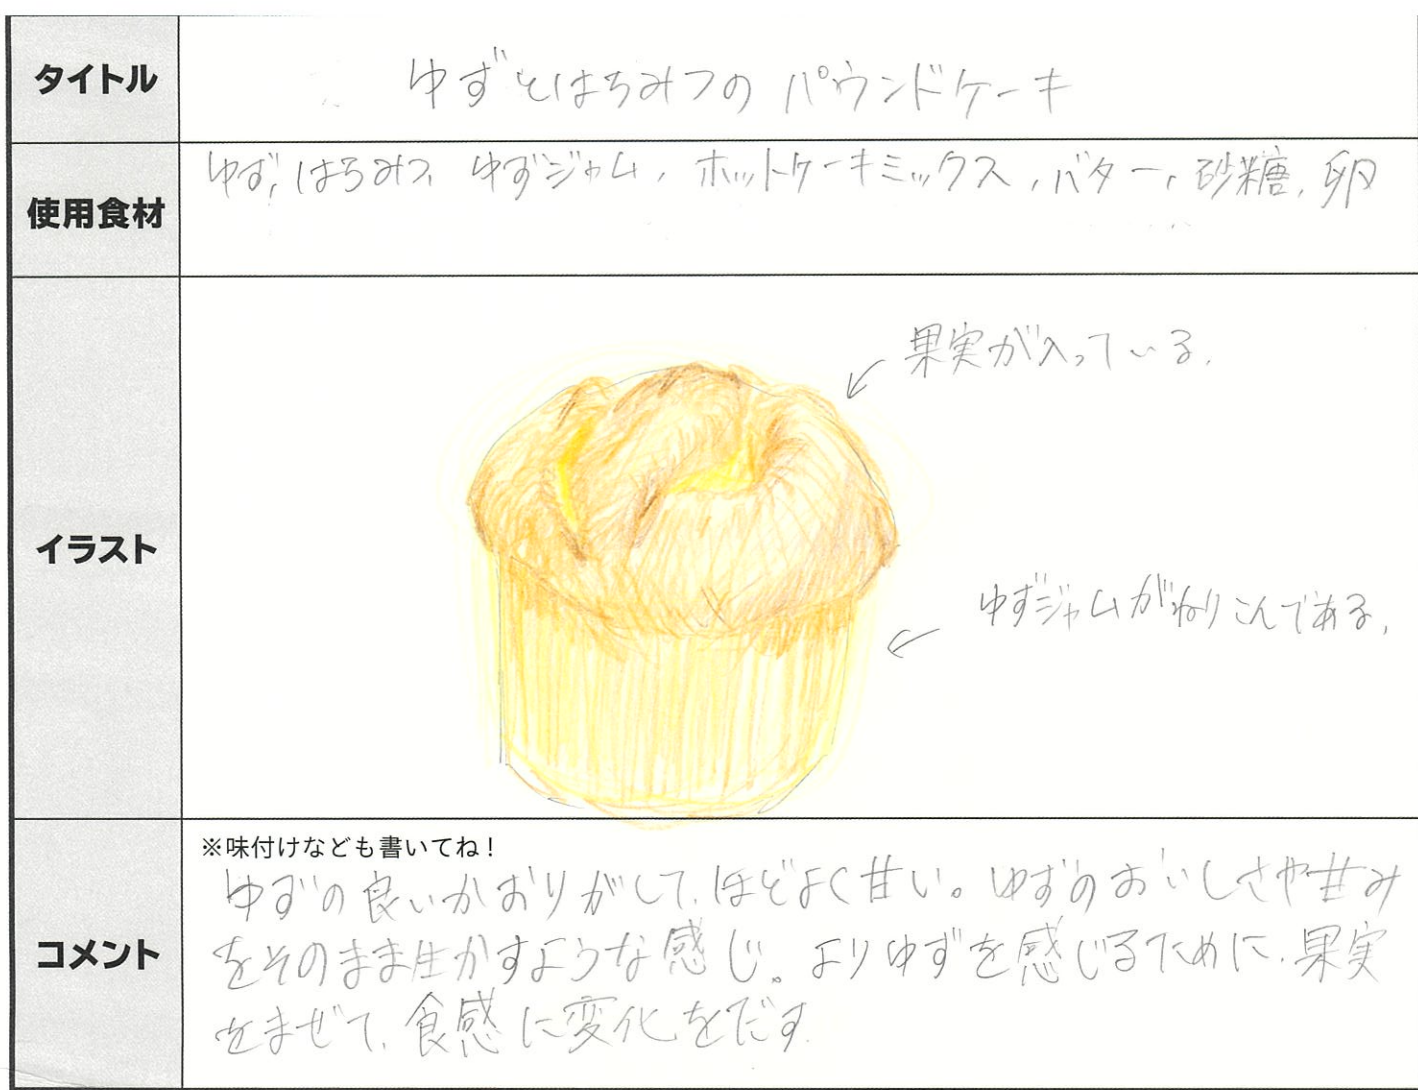 タイトル
ゆずとはちみつのパウンドケーキ
使用食材
ゆず、はちみつ、ゆずジャム、ホットケーキミックス、バター、砂糖、卵
イラスト
果実が入っている。
ゆずジャムがねりこんである。
コメント
※味付けなども書いてね!
ゆずの良いかおりがして、ほどよく甘い。ゆずのおいしさや甘み
をそのまま生かすような感じ。よりゆずを感じるために、果実
をまぜて、食感に変化をだす。